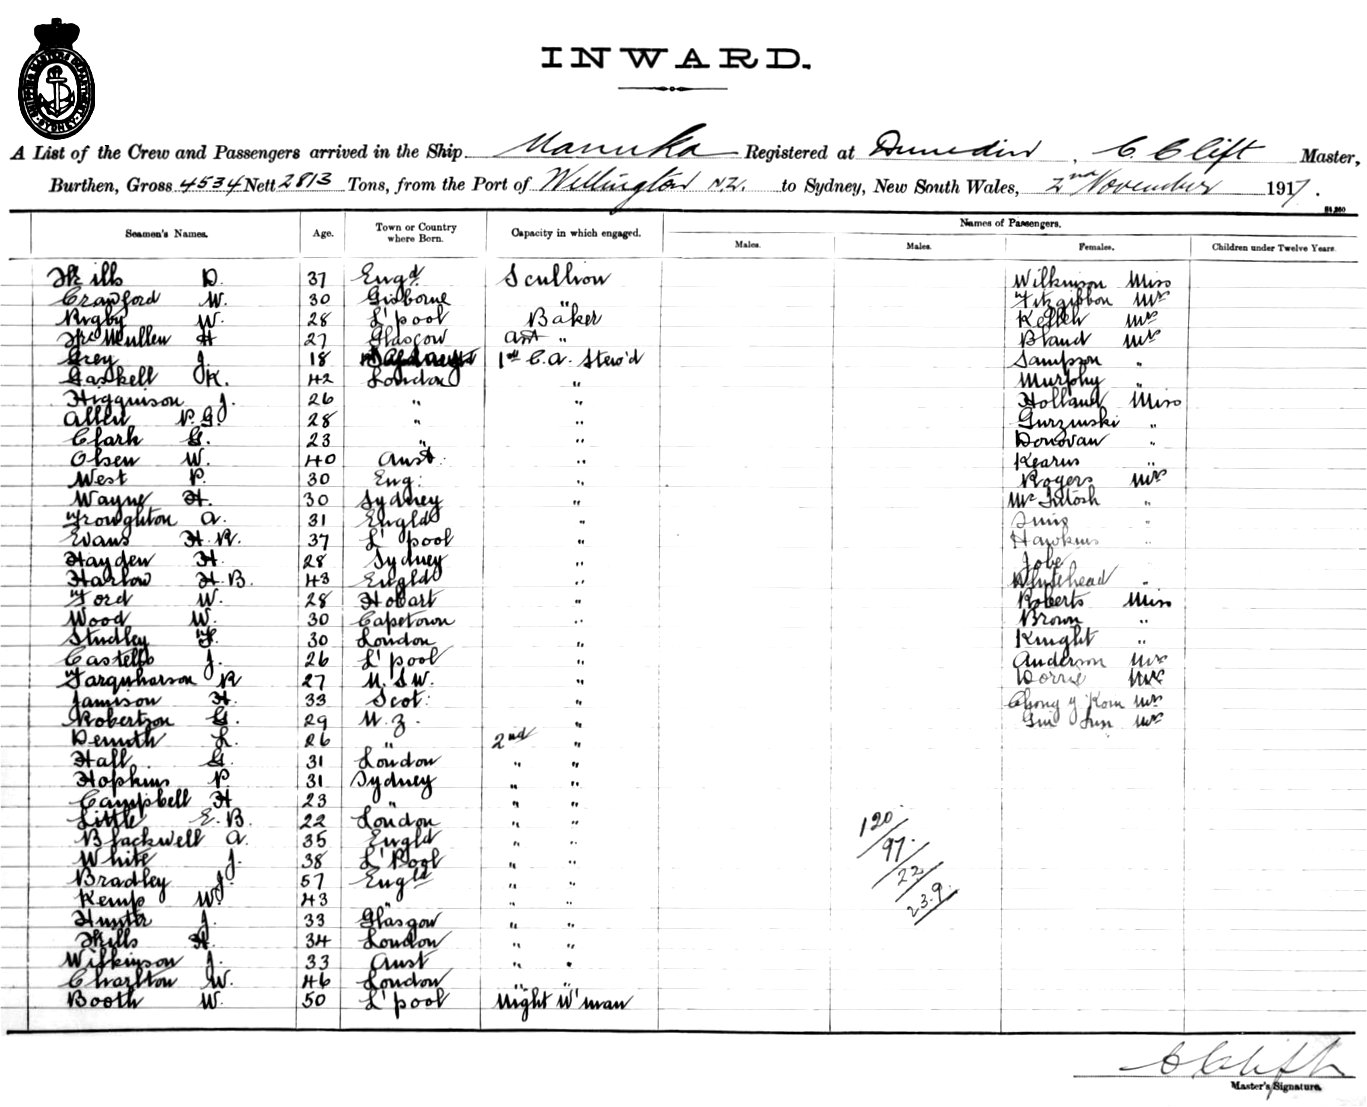 SHIPPING MASTERS DEPARTMENT SYDNEY
INWARD.
A List of the Crew and Passengers arrived in the Ship Manuka Registered at Dunedin, C. Clift Master,
Burthen, Gross 4534 Nett 2813 Tons, from the Port of Wellington N.Z. to Sydney, New South Wales, 2nd November 1917.
Names of Passengers.
Seamen's Names. Age. Town or Country where Born. Capacity in which engaged. Males. Males. Females. Children under Twelve Years.
D. 37 Engd Scullion Wilkinson Miss
Crawford W. 30 Gisborne " Fitzgibbon Mrs
Rigby W. 28 L'pool Baker Mrs
McMullen H 27 Glasgow Asst " Bland Mrs
Grey J. 18 1st C.A. Stew'd Sampson "
Gaskell K. 42 London " Murphy "
Higginson J. 26 " " Holland Miss
Allen P.G. 28 " " Gurzinski "
Clark G. 23 " " Donovan "
Olsen W. 40 Aust. " Kearns "
West P. 30 Eng. " Rogers Mrs
Wayne H. 30 Sydney " McIntosh "
Troughton A. 31 Engld " "
Evans H.R. 37 L'pool " Hawkins "
Hayden H. 28 Sydney " Jobe
Harlow H.B. 43 Engld " Whitehead "
Ford W. 28 Hobart " Roberts Miss
Wood W. 30 Capetown " Brown "
Studley F. 30 London " Knight "
Castells J. 26 L'pool " Anderson Mrs
Farquharson R 27 N.S.W. " Dorrie Mrs
Jamison H. 33 Scot. " Chong y Kom Mrs
Robertson G. 29 N.Z. " Mrs
Demuth L. 26 " 2nd "
Hall G. 31 London " "
Hopkins P 31 Sydney " "
Campbell H 23 " " "
Little E.B. 22 London " "
Blackwell A. 35 Engld " "
White J. 38 L'Pool " "
Bradley J. 57 Engld " "
Kemp W. 43 " " "
Hunter J. 33 Glasgow " "
H. 34 London " "
Wilkinson J. 33 Aust " "
Charlton W. 46 London " "
Booth W. 50 L'pool Night W'man
120
97
22
239
C Clift
Master's Signature.